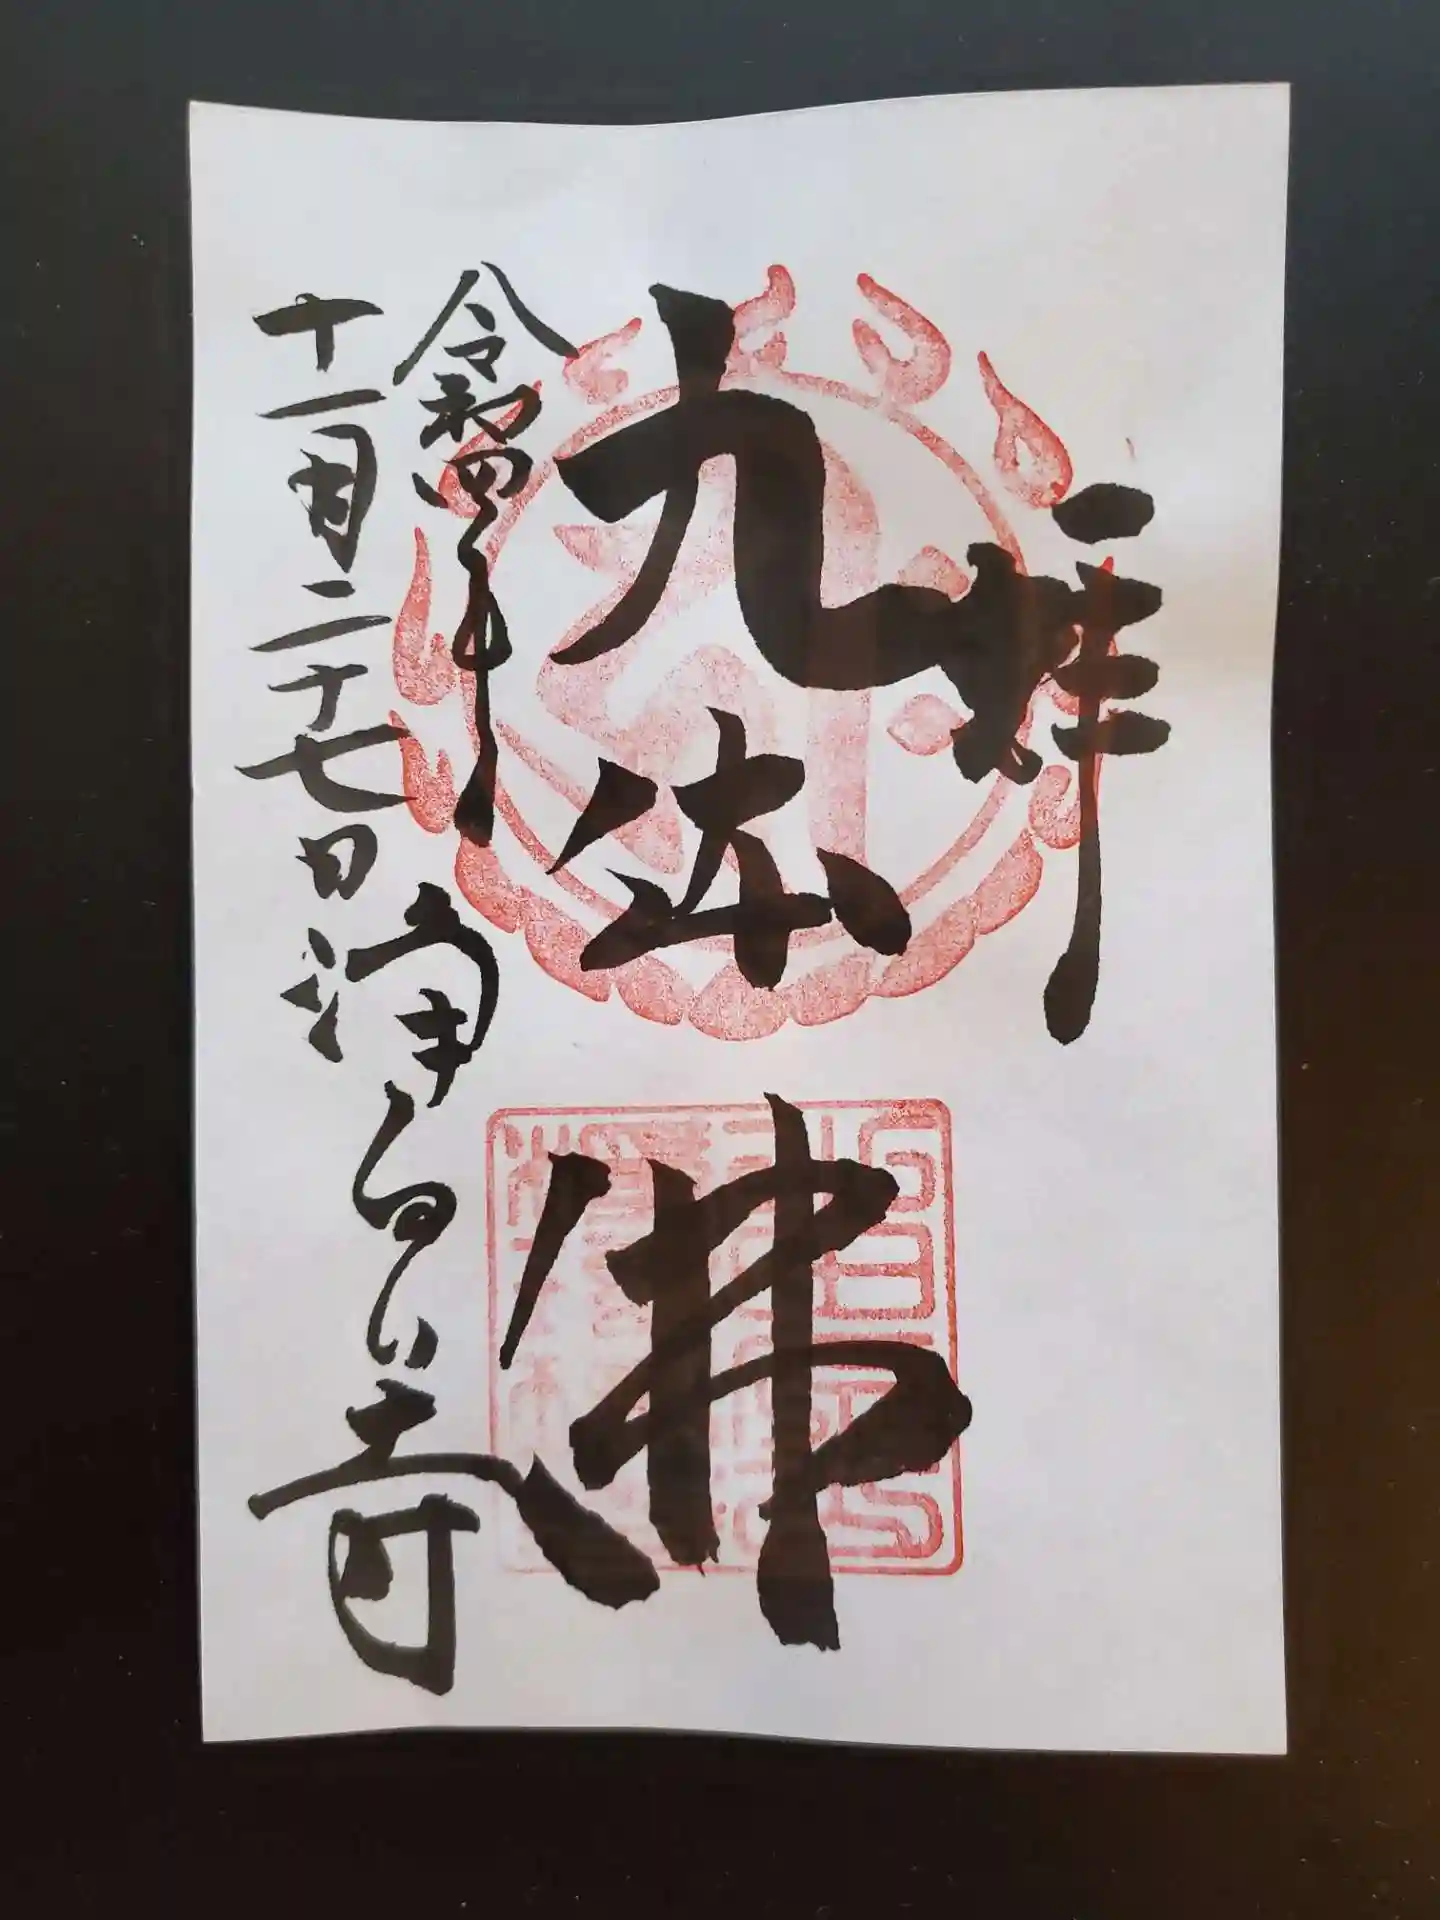 拝
九体佛
令和四年
十一月二十七日
浄るり寺